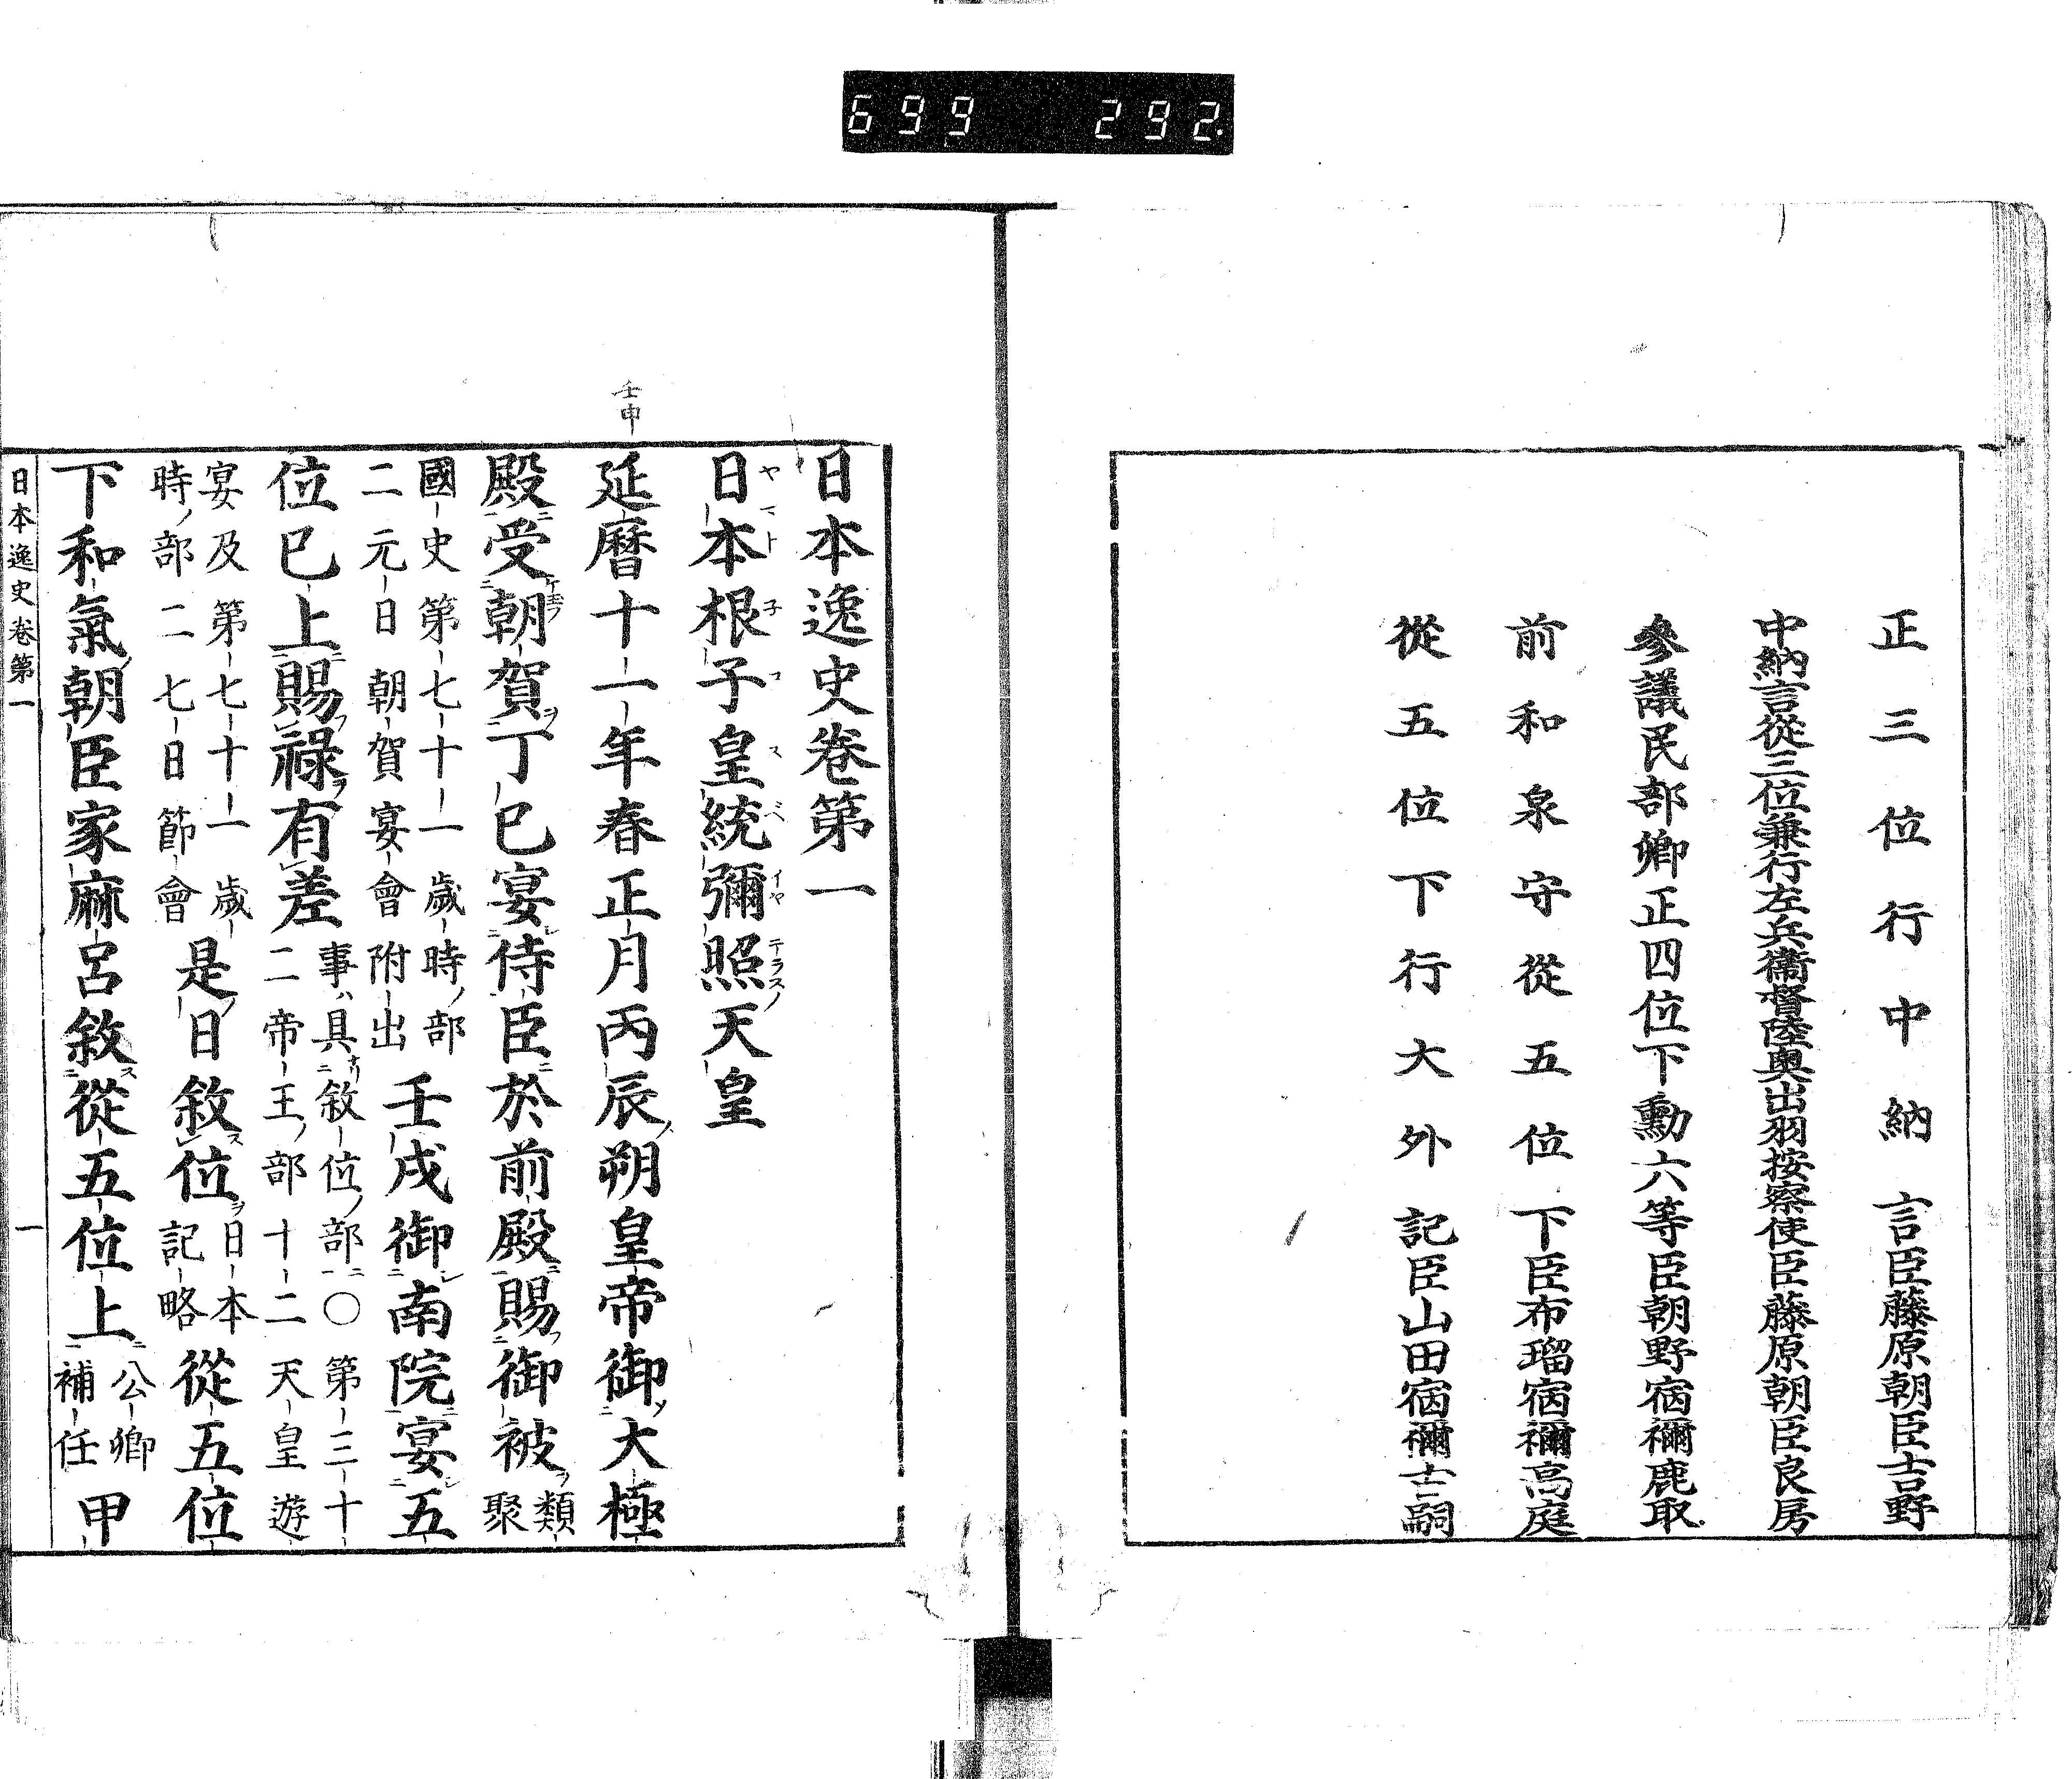 699 292.
正三位行中納言臣藤原朝臣吉野
中納言從三位兼行左兵衞督陸奧出羽按察使臣藤原朝臣良房
參議民部卿正四位下勳六等臣朝野宿禰鹿取
前和泉守從五位下臣布瑠宿禰高庭
從五位下行大外記臣山田宿禰古嗣
日本逸史卷第一
日本根子皇統彌照天皇
壬申
延曆十一年春正月丙辰朔皇帝御大極
殿受朝賀丁巳宴侍臣於前殿賜御被類聚
國史第七十一歲時部
二元日朝賀宴會附出
壬戌御南院宴五
位已上賜祿有差
事具敘位部〇第三十
二帝王部十二天皇遊
宴及第七十一歲
時部二七日節會
是日敘位
日本
記略
從五位
下和氣朝臣家麻呂敘從五位上
公卿
補任
甲
日本逸史卷第一
一